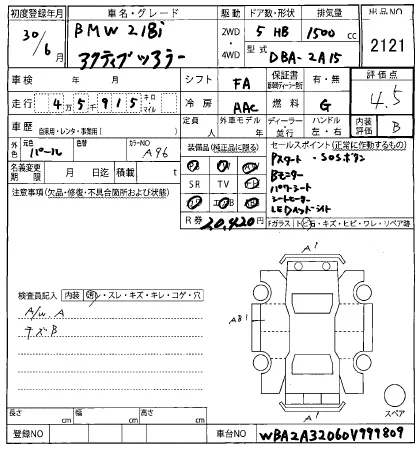 初度登録年月 車名・グレード 駆動 ドア数・形状 排気量 出品NO
30/6 BMW 218i 2WD 5 HB 1500 cc 2121
年 月 アクティブツアラー 4WD 型式 DBA-2A15
車検 年 月 シフト FA 保証書 有・無 評価点
走行 4万5千915 キロ・マイル 冷房 AAC 燃料 G 4.5
車歴 自家用・レンタ・事業用( ) 定員 人 外車モデル 年 ディーラー 並行 ハンドル 左・右 内装評価 B
色 元色 パール 色替 カラーNO A96
装備品(純正品に限る) セールスポイント(正常に作動するもの)
Pスタート ・SOSボタン
Bモニター
パワーシート
シートヒーター
LEDヘッドライト
SR TV
名義変更期限 月 日迄 積載 t
R券 20,920
Fガラス ト・石・キズ・ヒビ・ワレ・リペア跡
注意事項(欠品・修復・不具合箇所および状態)
検査員記入 内装 ・スレ・キズ・キレ・コゲ・穴
A/W.A
テズB
A1
AB1
A1
スペア
長さ cm 幅 cm 高さ cm
登録NO 車台NO WBA2A32060V999809